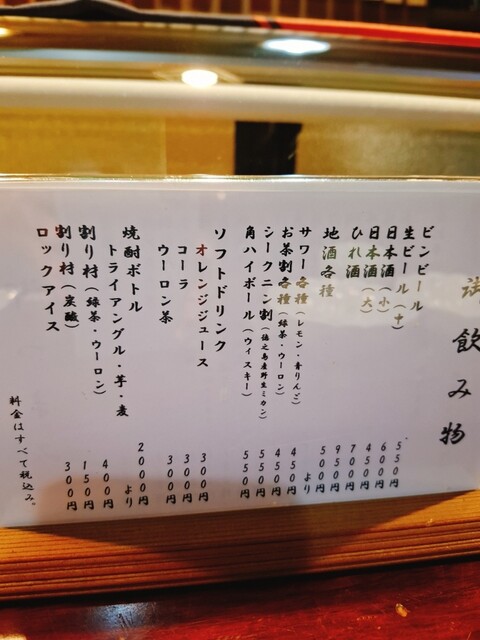 御飲み物
ビンビール 550円
生ビール(中) 600円
日本酒(小) 450円
日本酒(大) 700円
ひれ酒 950円
地酒各種 500円より
サワー各種(レモン・青りんご) 450円
お茶割各種(緑茶・ウーロン) 450円
シークニン割(徳之島産野生ミカン) 550円
角ハイボール(ウィスキー) 550円
ソフトドリンク
オレンジジュース 300円
コーラ 300円
ウーロン茶 300円
焼酎ボトル
トライアングル・芋・麦 2000円より
割り村(緑茶・ウーロン) 400円
割り村(炭酸) 150円
ロックアイス 300円
料金はすべて税込み。